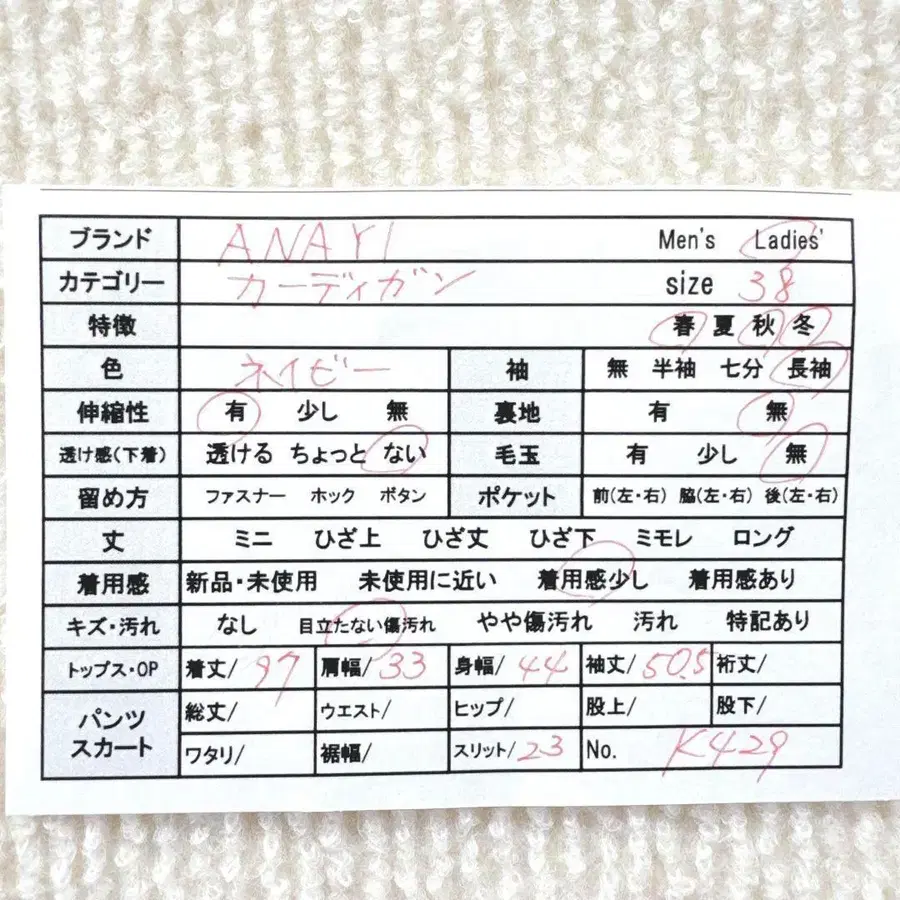 ブランド ANAYI Men's Ladies'
カテゴリー カーディガン size 38
特徴 春 夏 秋 冬
色 ネイビー 袖 無 半袖 七分 長袖
伸縮性 有 少し 無 裏地 有 無
透け感(下着) 透ける ちょっと ない 毛玉 有 少し 無
留め方 ファスナー ホック ボタン ポケット 前(左・右) 脇(左・右) 後(左・右)
丈 ミニ ひざ上 ひざ丈 ひざ下 ミモレ ロング
着用感 新品・未使用 未使用に近い 着用感少し 着用感あり
キズ・汚れ なし 目立たない傷汚れ やや傷汚れ 汚れ 特記あり
トップス・OP 着丈/ 97 肩幅/ 33 身幅/ 44 袖丈/ 50.5 裄丈/
パンツ スカート 総丈/ ウエスト/ ヒップ/ 股上/ 股下/
ワタリ/ 裾幅/ スリット/ 23 No. K429